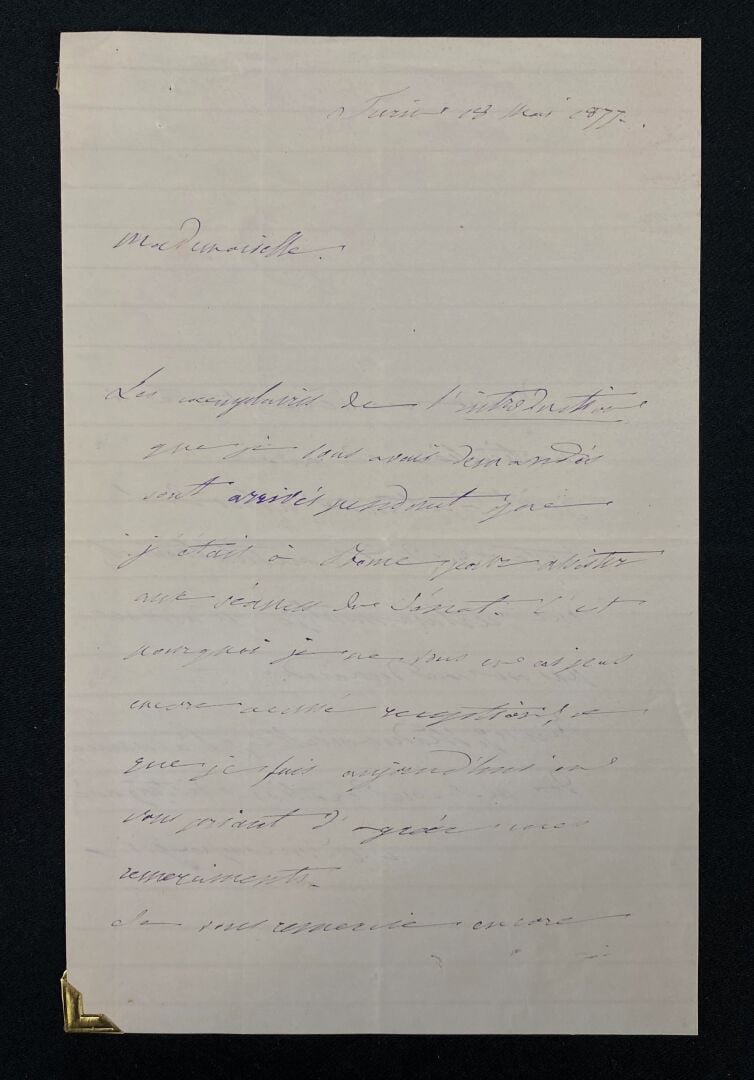 Turin 18 Mai 1877.
Mademoiselle.
Les exemplaires de l'introduction
que je vous avais demandés
sont arrivés pendant que
j'étais à Rome pour assister
aux séances du Sénat. C'est
pourquoi je ne vous en ai pas
encore accusé reception, ce
que je fais aujourd'hui en
vous priant d'agréer mes
remerciments.
Je vous remercie encore